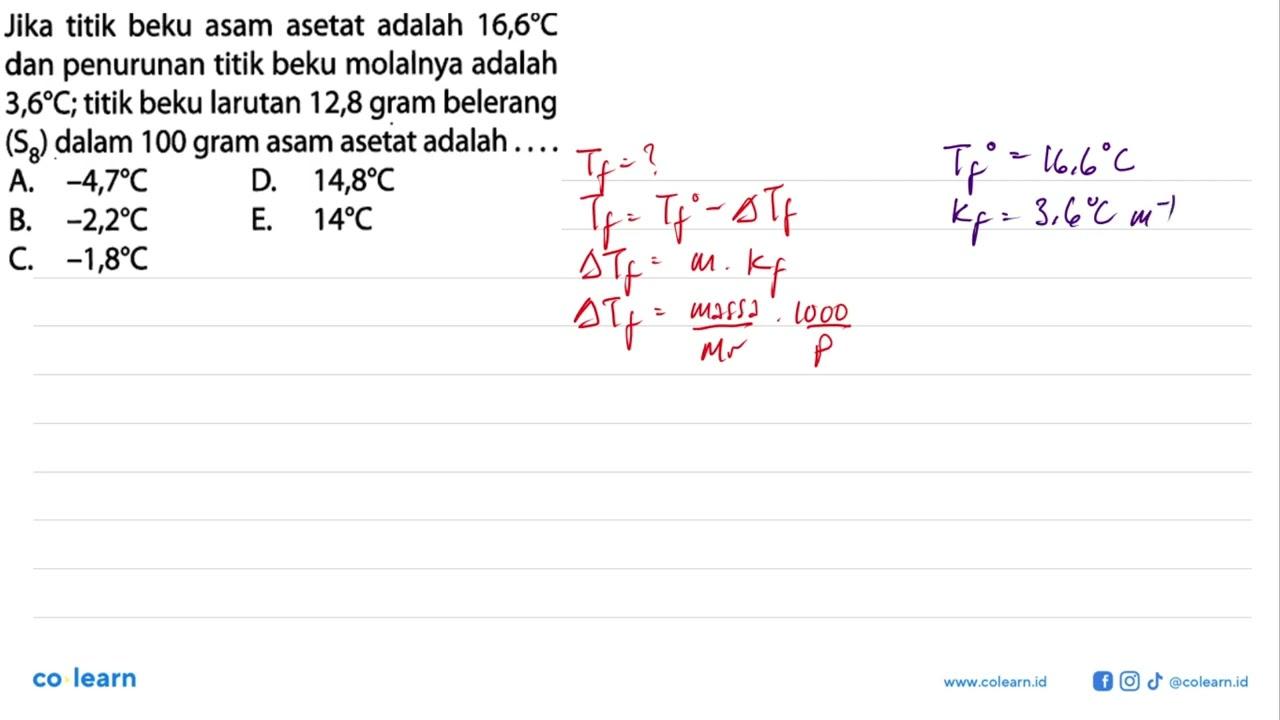 Jika titik beku asam asetat adalah 16,6°C
dan penurunan titik beku molalnya adalah
3,6°C; titik beku larutan 12,8 gram belerang
(S₈) dalam 100 gram asam asetat adalah . . . .
A. –4,7°C D. 14,8°C
B. –2,2°C E. 14°C
C. –1,8°C
Tf = ?
Tf = Tf° - ΔTf
ΔTf = m . Kf
ΔTf = massa/Mr . 1000/P
Tf° = 16,6°C
Kf = 3,6°C m⁻¹
co learn
www.colearn.id
@colearn.id